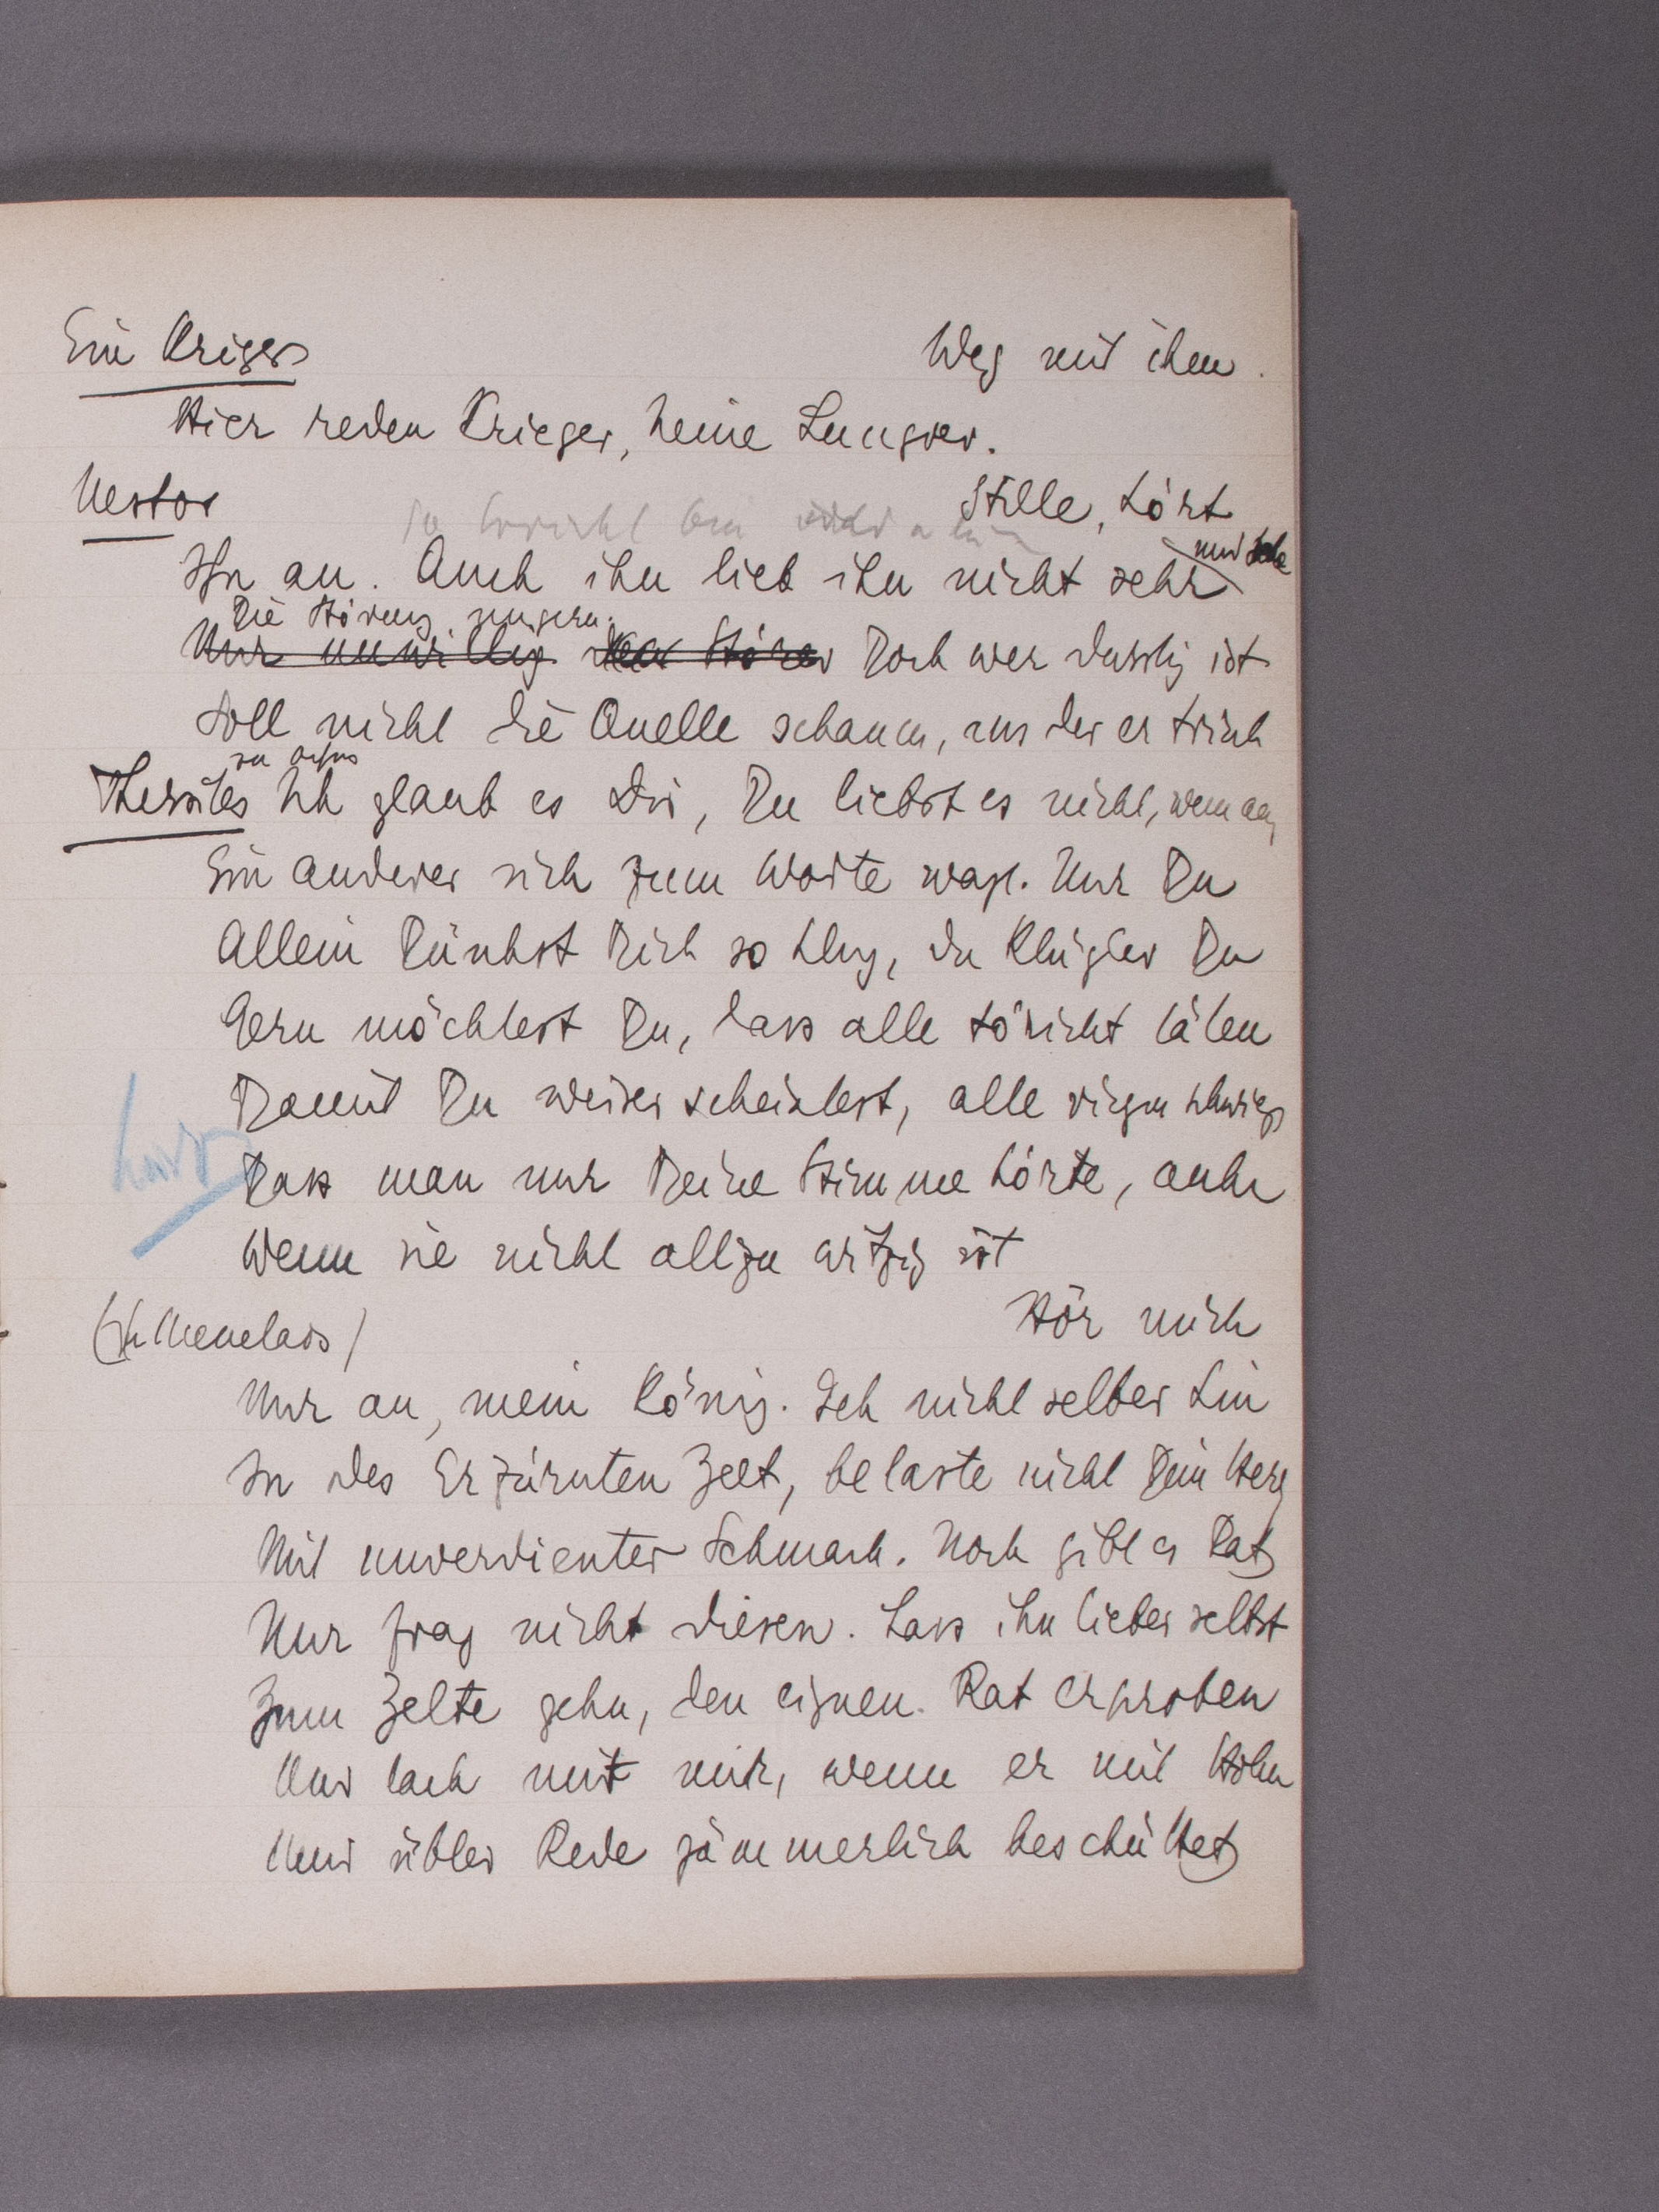 Ein Krieger
Weg mit ihm.
Hier reden Krieger, keine Lungrer.
Nestor
Stille, hört
Ihn an. Auch ich lieb ihn nicht sehr
und
Die Störung ungern.
Nur unwillig den Störer Doch wer durstig ist
Soll nicht die Quelle schauen, aus der er trink
Thersites Ich glaub es Dir, Du liebst es nicht, wenn auch
Ein anderer sich zum Worte wagt. Nur Du
Allein dünkst Dich so klug, du Klügler Du
Gern möchtest Du, dass alle töricht täten
Damit Du weiser scheintest, alle schwiegen
Dass man nur Deine Stimme hörte, auch
Wenn sie nicht allzu witzig ist
(Zu Menelaos)
Hör mich
Nur an, mein König. Geh nicht selber hin
In des Erzürnten Zelt, belaste nicht Dein Herz
Mit unverdienter Schmach. Noch gibt es Rat
Nur frag nicht diesen. Lass ihn lieber selbst
Zum Zelte gehn, den eignen Rat erproben
Und lach mit mir, wenn er mit Hohn
Und übler Rede jämmerlich beschüttet